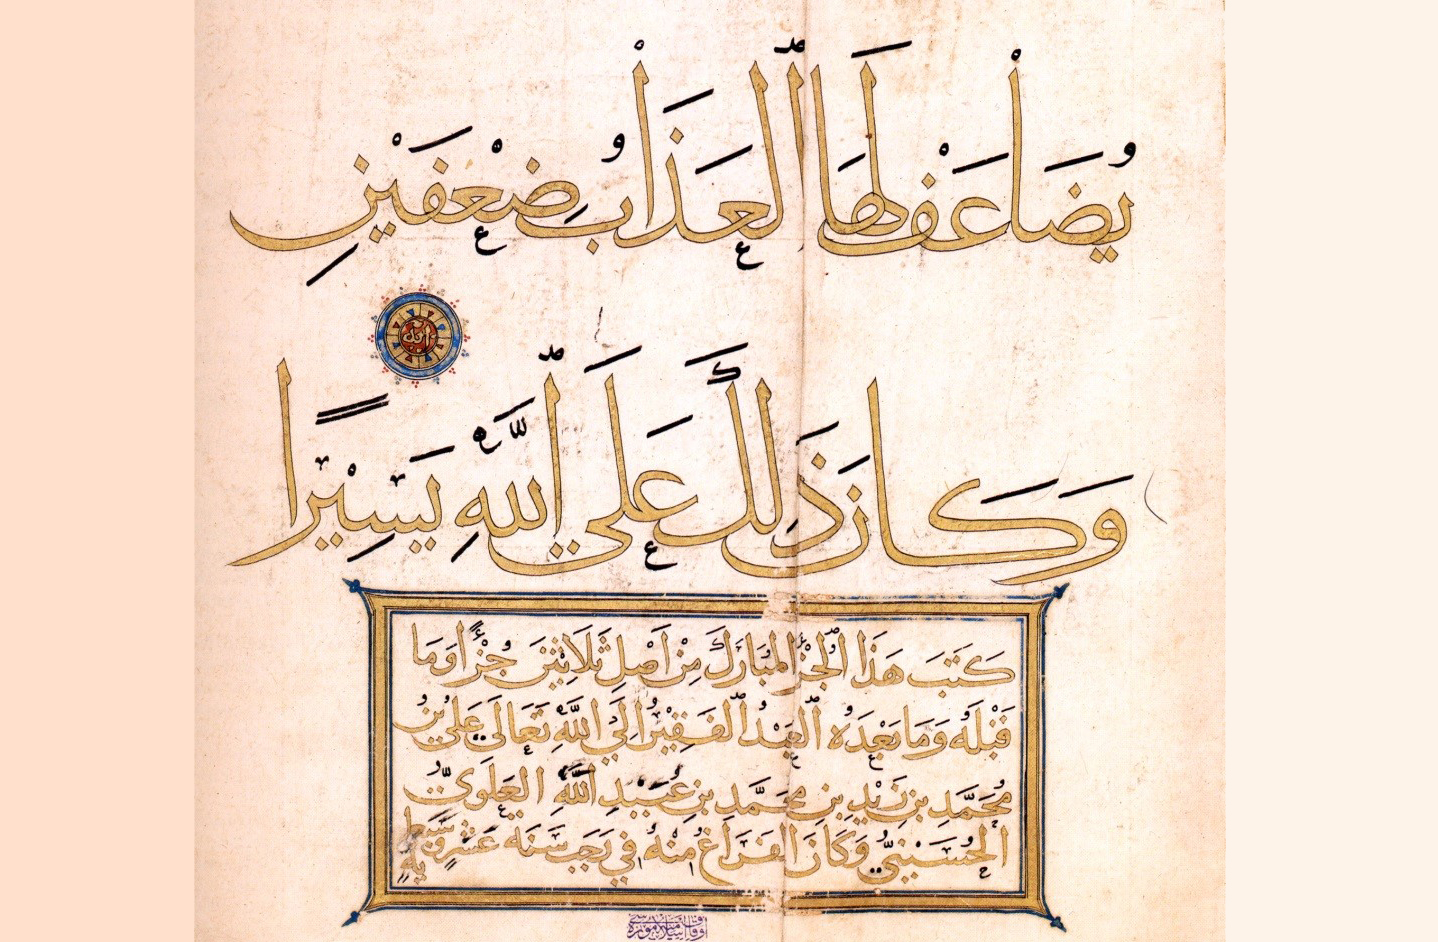 يُضَاعَفْ لَهَا ٱلْعَذَابُ ضِعْفَيْنِ
وَكَانَ ذَلِكَ عَلَى ٱللَّهِ يَسِيرًا
كَتَبَ هَذَا ٱلْجُزْءَ ٱلْمُبَارَكَ مِنْ أَصْلِ ثَلَاثِينَ جُزْءًا وَمَا
قَبْلَهُ وَمَا بَعْدَهُ ٱلْعَبْدُ ٱلْفَقِيرُ إِلَى ٱللَّهِ تَعَالَى عَلِيُّ بْنُ
مُحَمَّدِ بْنِ زَيْدِ بْنِ مُحَمَّدِ بْنِ عُبَيْدِ ٱللَّهِ الْعَلَوِيُّ
الْحُسَيْنِيُّ وَكَانَ الْفَرَاغُ مِنْهُ فِي رَجَبٍ سَنَةَ عَشْرٍ وَسَبْعِ
مِائَةٍ